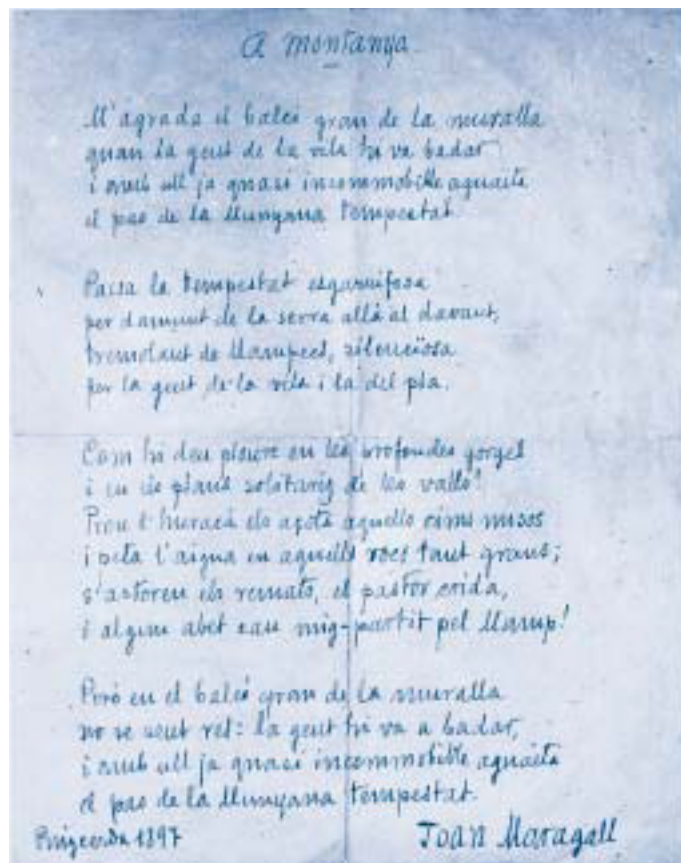 A montanya
M'agrada el balcó gran de la muralla
quan la gent de la vila hi va badar
i amb ull ja quasi incommobible aguaita
el pas de la llunyana tempestat.
Passa la tempestat esgarrifosa
per damunt de la serra allà al davant,
tremolant de llampecs, silenciosa
per la gent de la vila i la del pla.
Com hi deu ploure en les profondes gorges
i en els plans solitaris de les valls!
Prou l'huracà els açota aquells cims nusos
i peta l'aigua en aquells rocs tant grans;
s'astoren els remats, el pastor crida,
i algun abet cau mig-partit pel llamp!
Però en el balcó gran de la muralla
no se sent res: la gent hi va a badar,
i amb ull ja quasi incommobible aguaita
el pas de la llunyana tempestat.
Puigcerdà 1897
Joan Maragall